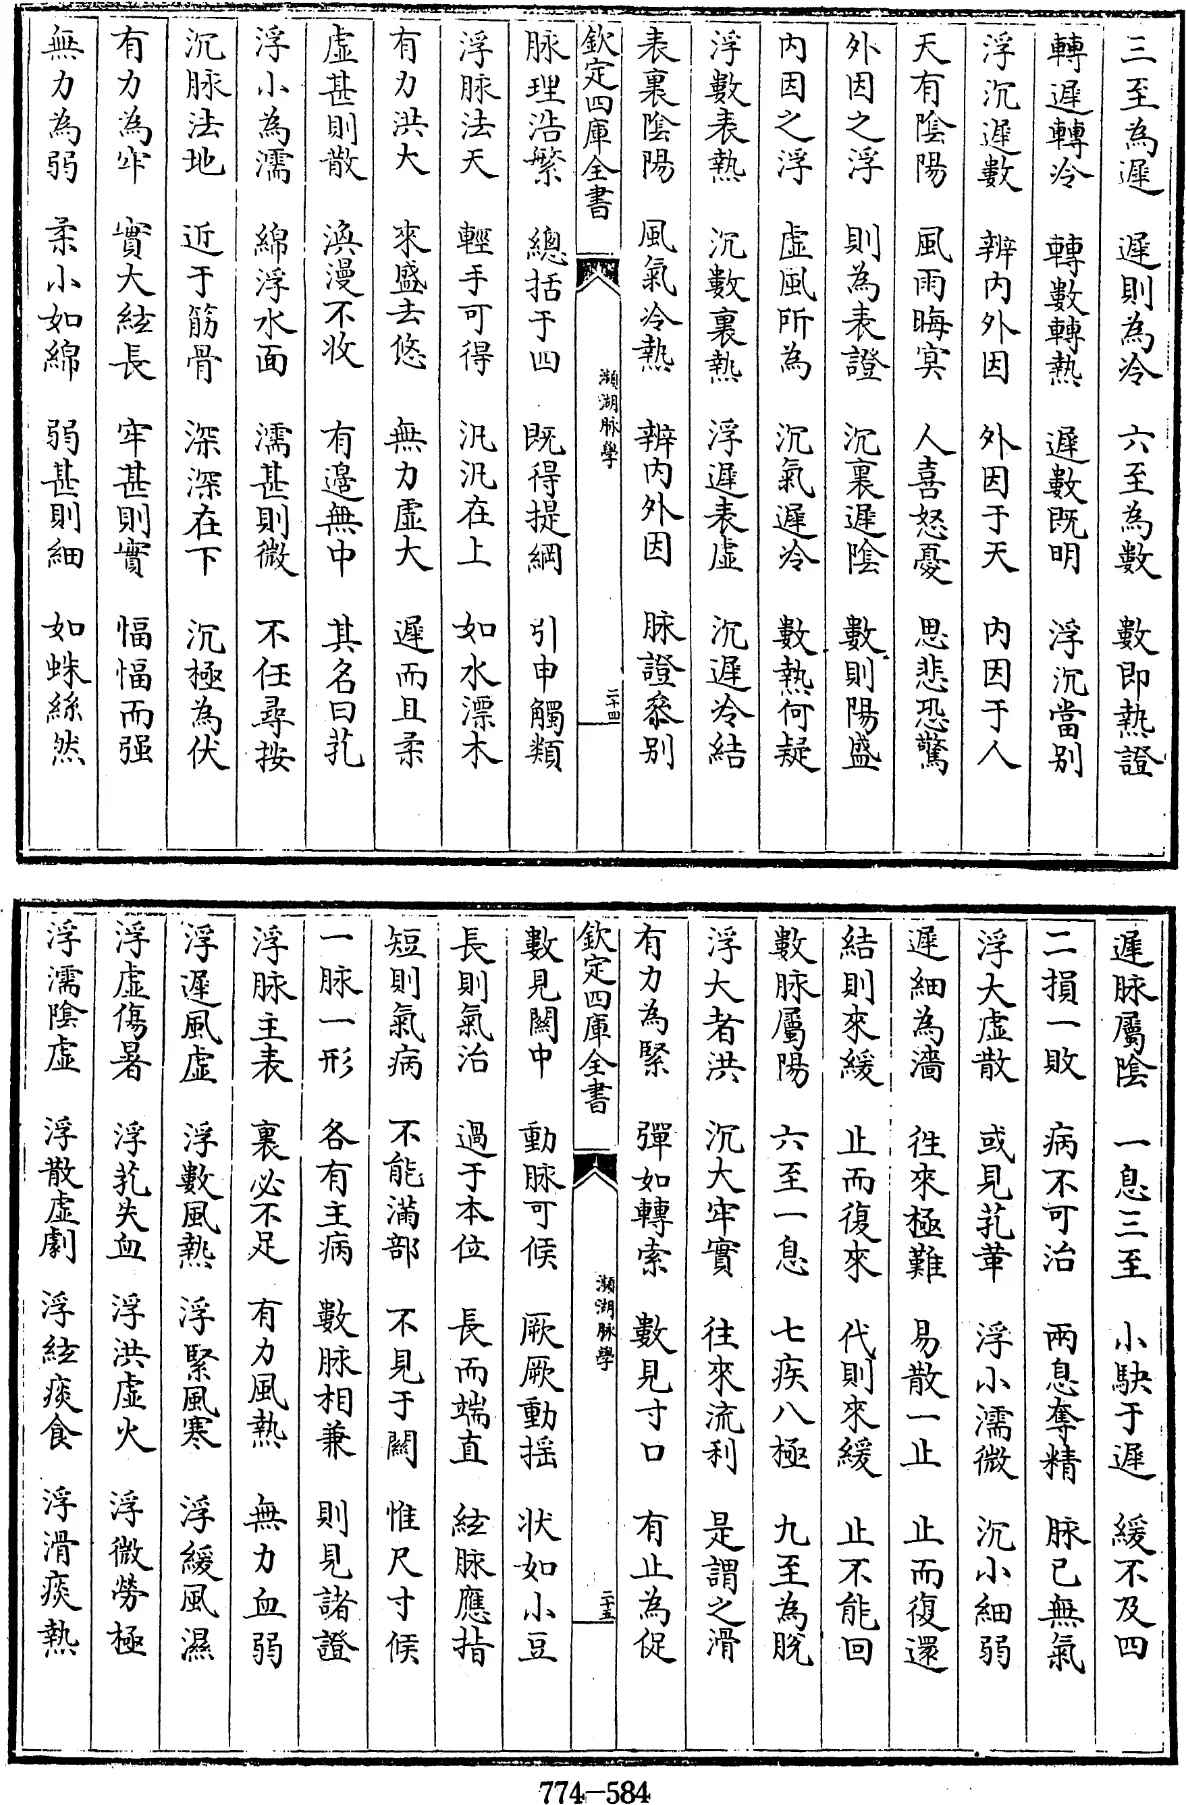 三至為遲 遲則為冷 六至為數 數即熱證
轉遲轉冷 轉數轉熱 遲數既明 浮沉當别
浮沉遲數 辨内外因 外因于天 内因于人
天有陰陽 風雨晦冥 人喜怒憂 思悲恐驚
外因之浮 則為表證 沉裏遲陰 數則陽盛
内因之浮 虚風所為 沉氣遲冷 數熱何疑
浮數表熱 沉數裏熱 浮遲表虚 沉遲冷結
表裏陰陽 風氣冷熱 辨内外因 脉證叅别
欽定四庫全書 瀕湖脉學 二十四
脉理浩繁 總括于四 既得提綱 引申觸類
浮脉法天 輕手可得 汎汎在上 如水漂木
有力洪大 來盛去悠 無力虚大 遲而且柔
虚甚則散 渙漫不收 有邉無中 其名曰芤
浮小為濡 綿浮水面 濡甚則微 不任尋按
沉脉法地 近于筋骨 深深在下 沉極為伏
有力為牢 實大絃長 牢甚則實 愊愊而强
無力為弱 柔小如綿 弱甚則細 如蛛絲然
遲脉屬陰 一息三至 小駃于遲 緩不及四
二損一敗 病不可治 兩息奪精 脉已無氣
浮大虚散 或見芤革 浮小濡微 沉小細弱
遲細為濇 徃來極難 易散一止 止而復還
結則來緩 止而復來 代則來緩 止不能回
數脉屬陽 六至一息 七疾八極 九至為脱
浮大者洪 沉大牢實 往來流利 是謂之滑
有力為緊 彈如轉索 數見寸口 有止為促
欽定四庫全書 瀕湖脉學 二十五
數見闗中 動脉可候 厥厥動揺 状如小豆
長則氣治 過于本位 長而端直 絃脉應指
短則氣病 不能滿部 不見于闗 惟尺寸候
一脉一形 各有主病 數脉相兼 則見諸證
浮脉主表 裏必不足 有力風熱 無力血弱
浮遲風虚 浮數風熱 浮緊風寒 浮緩風濕
浮虚傷暑 浮芤失血 浮洪虚火 浮微勞極
浮濡陰虚 浮散虚劇 浮絃痰食 浮滑痰熱
774-584